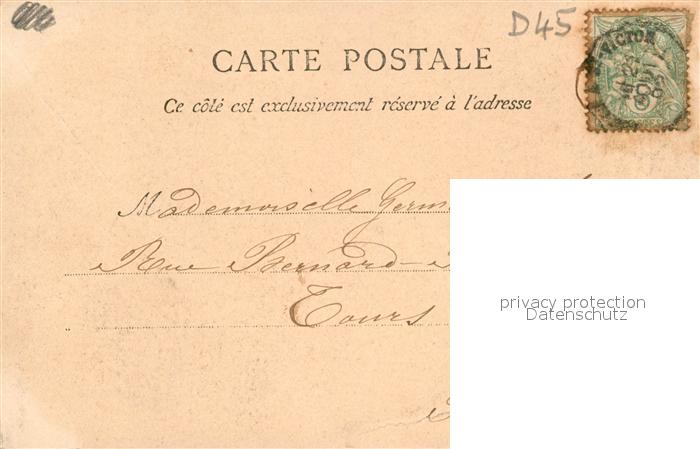 D45
CARTE POSTALE
VICTOR
Ce côté est exclusivement réservé à l'adresse
Mademoiselle Germ
Rue Bernard
Tours
privacy protection
Datenschutz